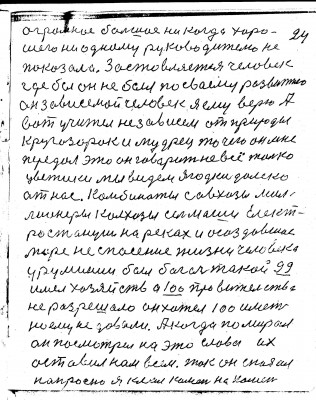 огромное большое никогда хоро-
шего ни одному руководителю не 24
показала. Заставляется человек
где бы он не был по своему развитию
он зависемой человек я ему верю А
вот учител независем от природы
Кругозорок и мудрец точно он мне
передал это он говорит не всё только
цветики мы видем ягодки далеко
от нас. Комбинаты совхозы мил-
лионеры колхозы селмаши Елект-
ростанции на реках и созданное
море не спасение жизни человека
у румынии был богач такой 99
имел хозяйств а 100 правительства
не разрешало он хотел 100 иметь
но ему не давали. А когда помирал
он посмотрел на это слова их
оставил нам всем. Так он сказал
напрасно я клал камен на камен